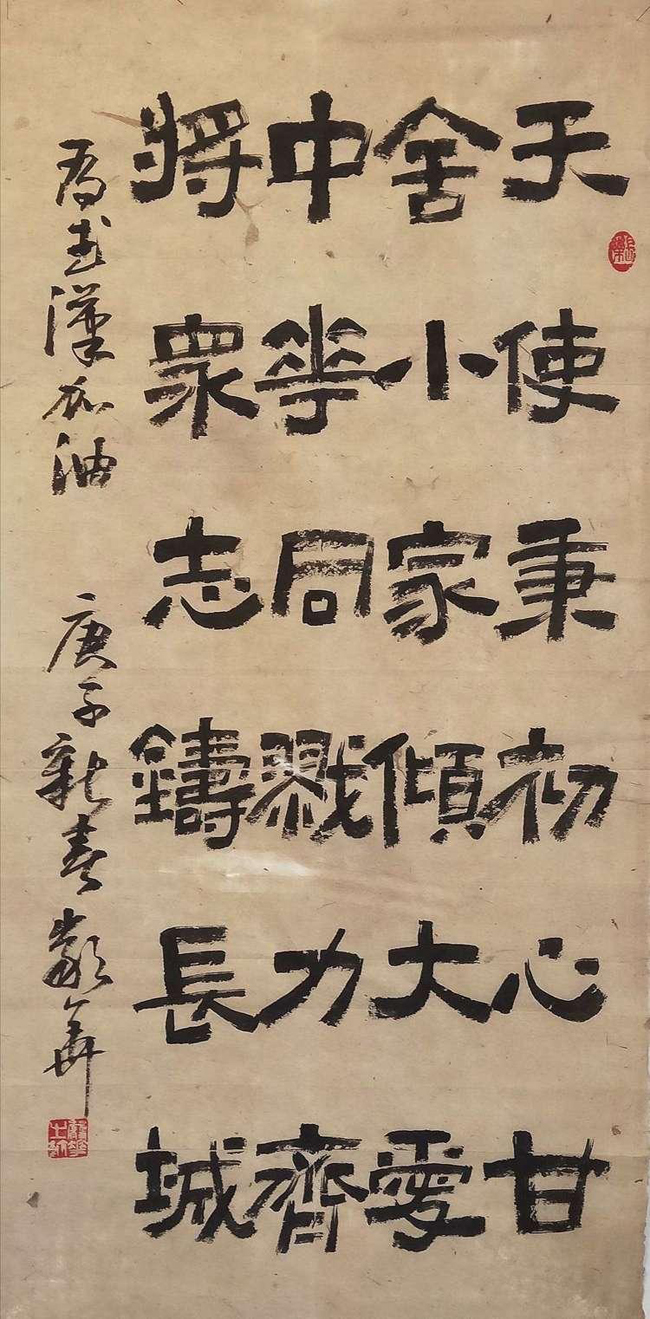 天使秉初心甘
舍小家傾大愛
中華同戮力齊
將衆志鑄長城
為武漢加油 庚子新春